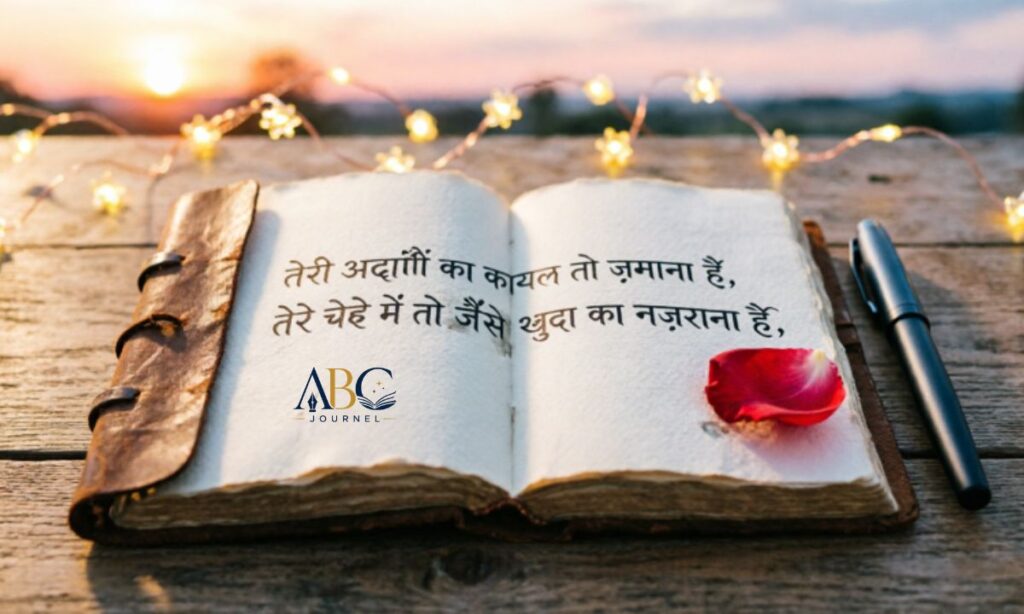 तेरी का कायल तो ज़माना हैं,
तेरे चेहे में तो जैंसे खुदा का नज़राना हैं,
ABC
JOURNEL